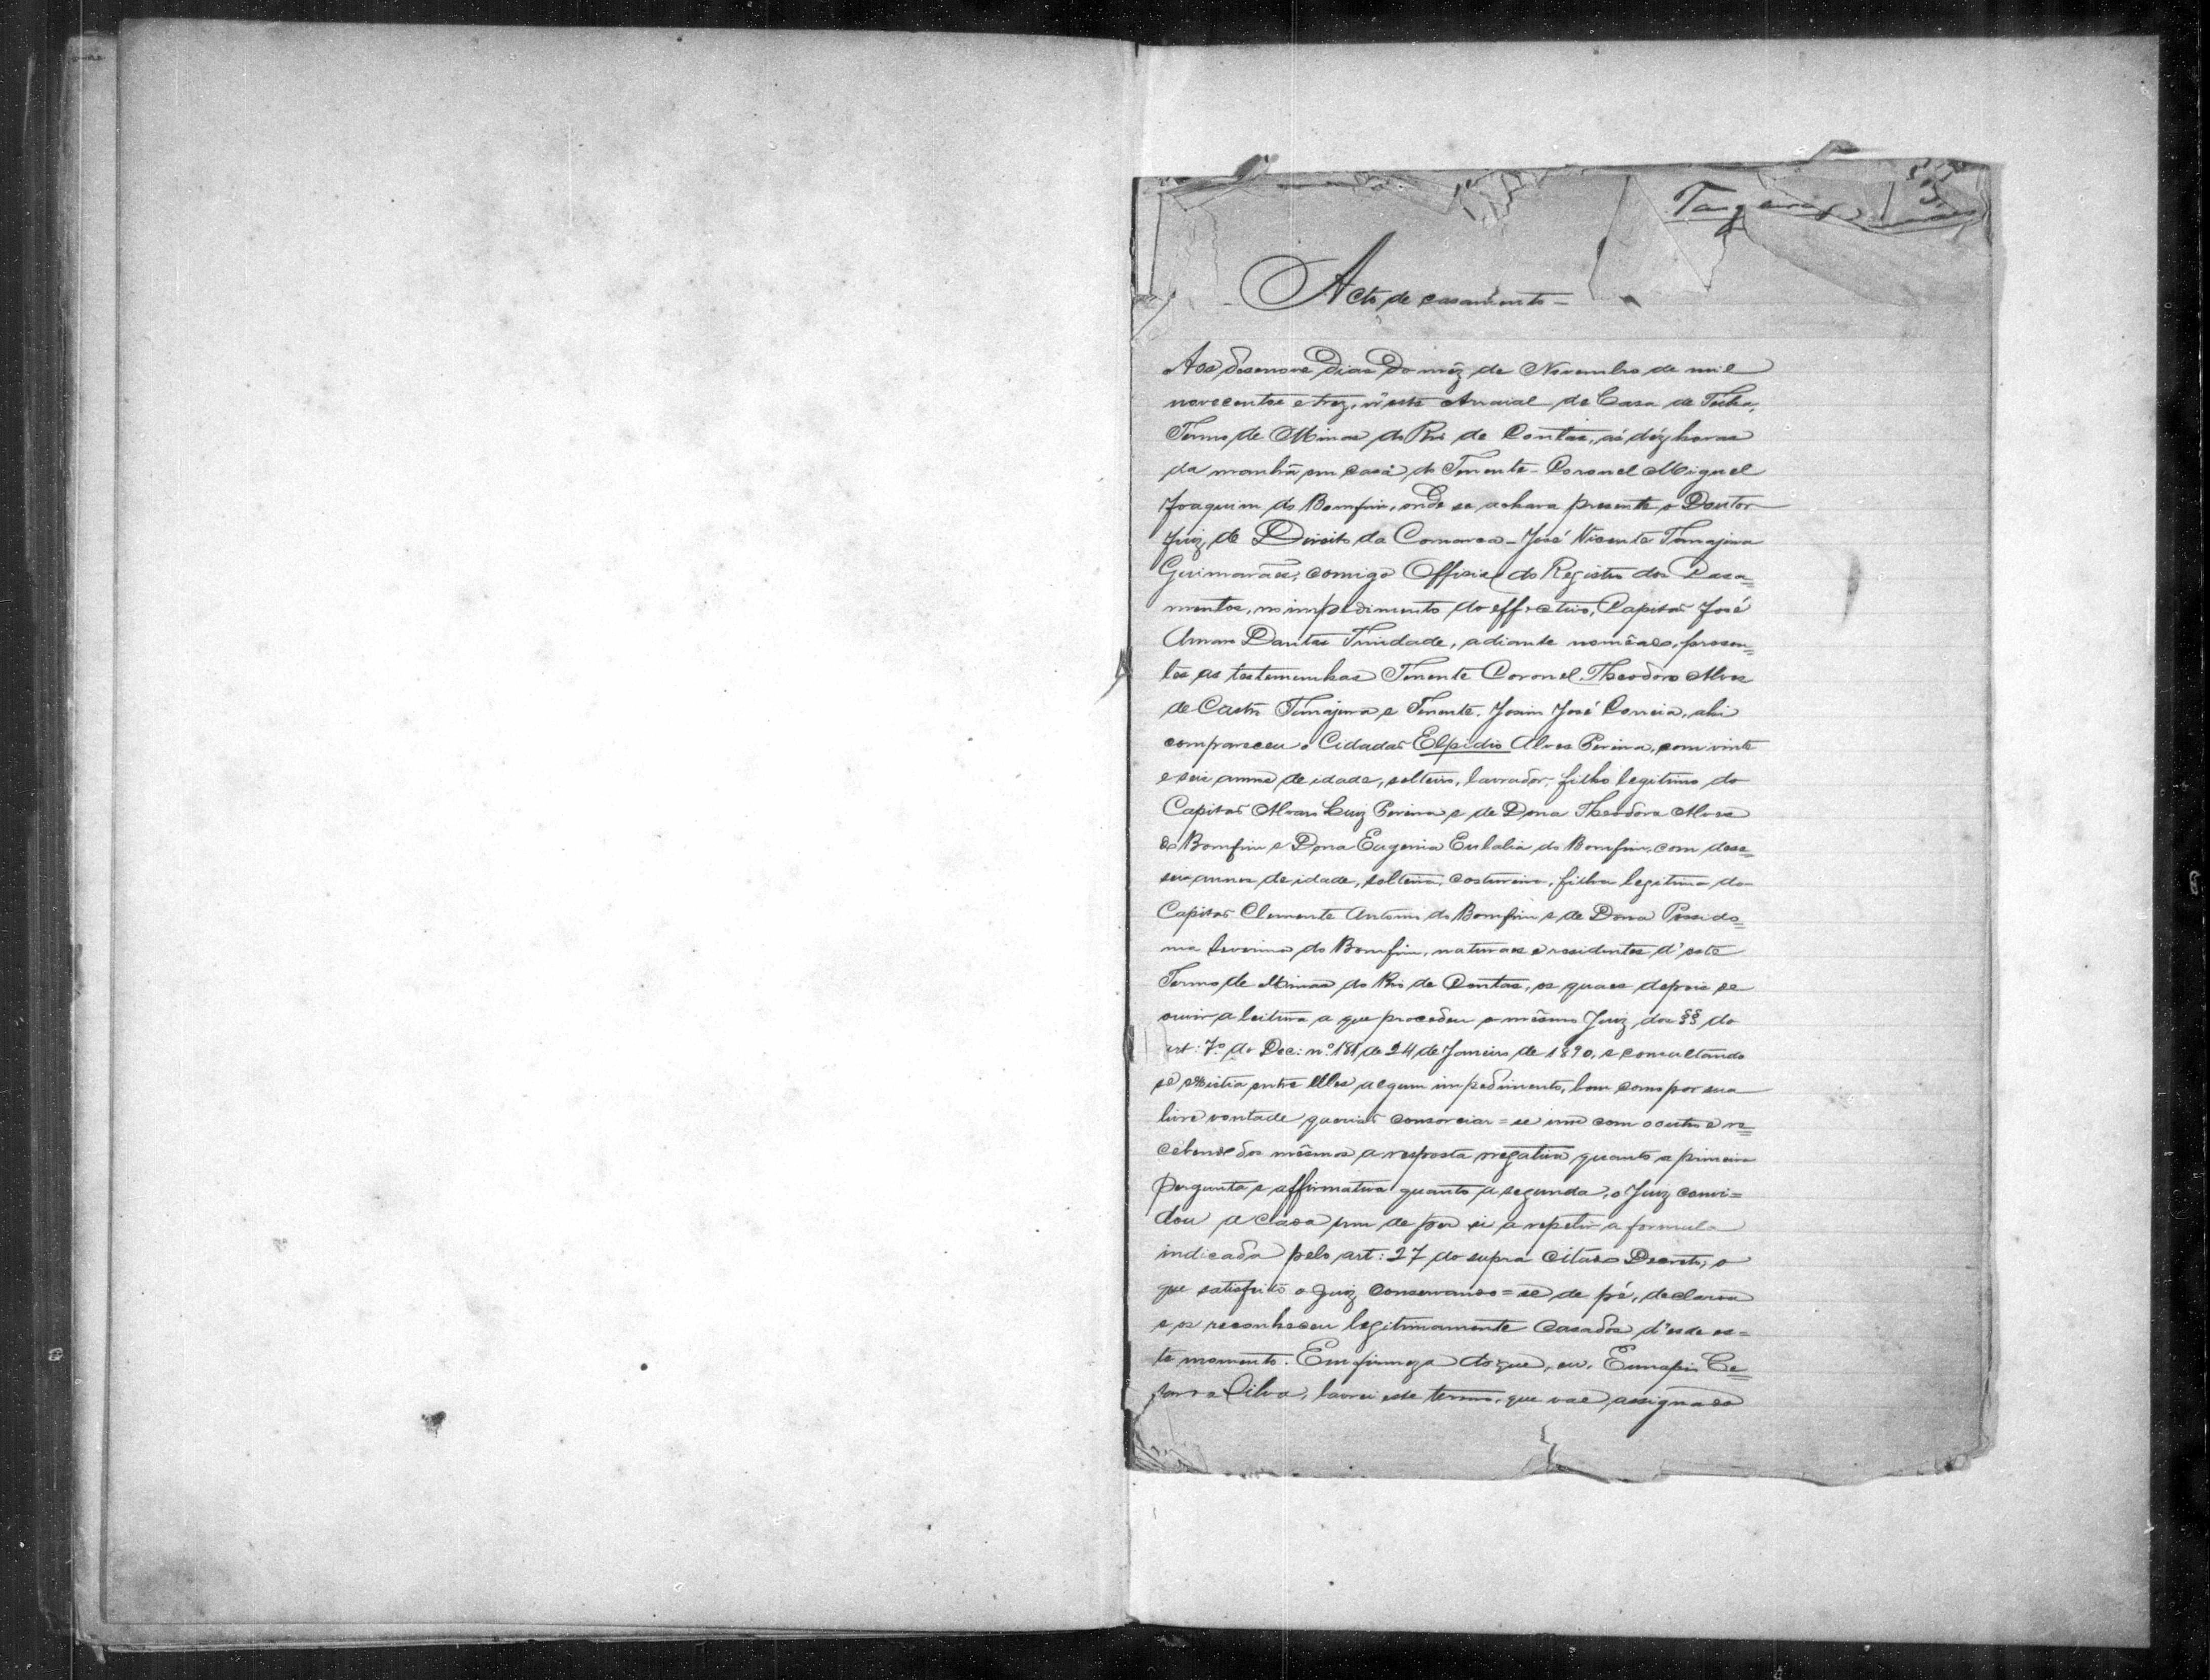 Acto de casamento =
Aos desenove Dias Do mêz de Novembro de mil
novecentos e trez, n'este Arraial de Casa de Telha,
Termo de Minas do Rio de Contas, ás déz horas
da manhã em casa do Tenente-Coronel Miguel
Joaquim do Bomfim, onde se achava presente o Doutor
Juiz de Direito da Comarca - José Vicente Tanajura
Guimarães, comigo Official do Registro dos Casa=
mentos, no impedimento do effectivo, Capitaõ José
Dantas Trindade, adiante nomeado, presen=
tes as testemunhas Tenente Coronel Theodoro Alves
de Castro Tanajura e Tenente José Correia, ahi
compareceu o Cidadaõ Elpidio Alves Pereira, com vinte
e seis annos de idade, solteiro, lavrador, filho legitimo do
Capitaõ Alvaro Luiz Pereira e de Dona Theodora Alves
do Bomfim e Dona Eugenia Eulalia do Bomfim, com dese=
seis annos de idade, solteira, costureira, filha legitima do
Capitaõ Clemente Antonio do Bomfim e de Dona
do Bomfim, naturaes e residentes d'este
Termo de Minas do Rio de Contas, os quaes depois de
ouvir a leitura a que procedeu o mêsmo Juiz dos §§ do
art: 7º do Dec: nº 181 de 24 de Janeiro de 1890, e consultando
se existia entre elles algum impedimento, bem como por sua
livre vontade queriaõ consorciar=se um com o outro e re=
cebendo dos mêsmos a resposta negativa quanto a primeira
pergunta e affirmativa quanto a segunda, o Juiz convi=
dou a cada um de per si a repetir a formula
indicada pelo art: 27 do supra citado Decreto, o
que satisfeito o Juiz conservando=se de pé, declarou
e os reconheceu legitimamente casados d'esde es=
te momento. Em firmeza do que, eu,
Silva, lavrei este termo, que vae assignado